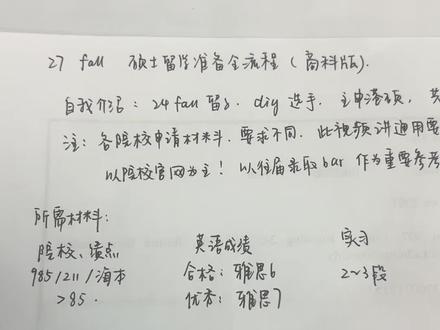 27 fall 硕士留学准备全流程（商科版）.
自我介绍：24 fall 留s. diy 选手. 主申港硕, 英
注：各院校申请材料、要求不同. 此视频讲通用要
以院校官网为主！以往届录取bar作为重要参考
所需材料：
院校、绩点 英语成绩 实习
985/211/海本 合格：雅思6 2~3段
>85. 优秀：雅思7